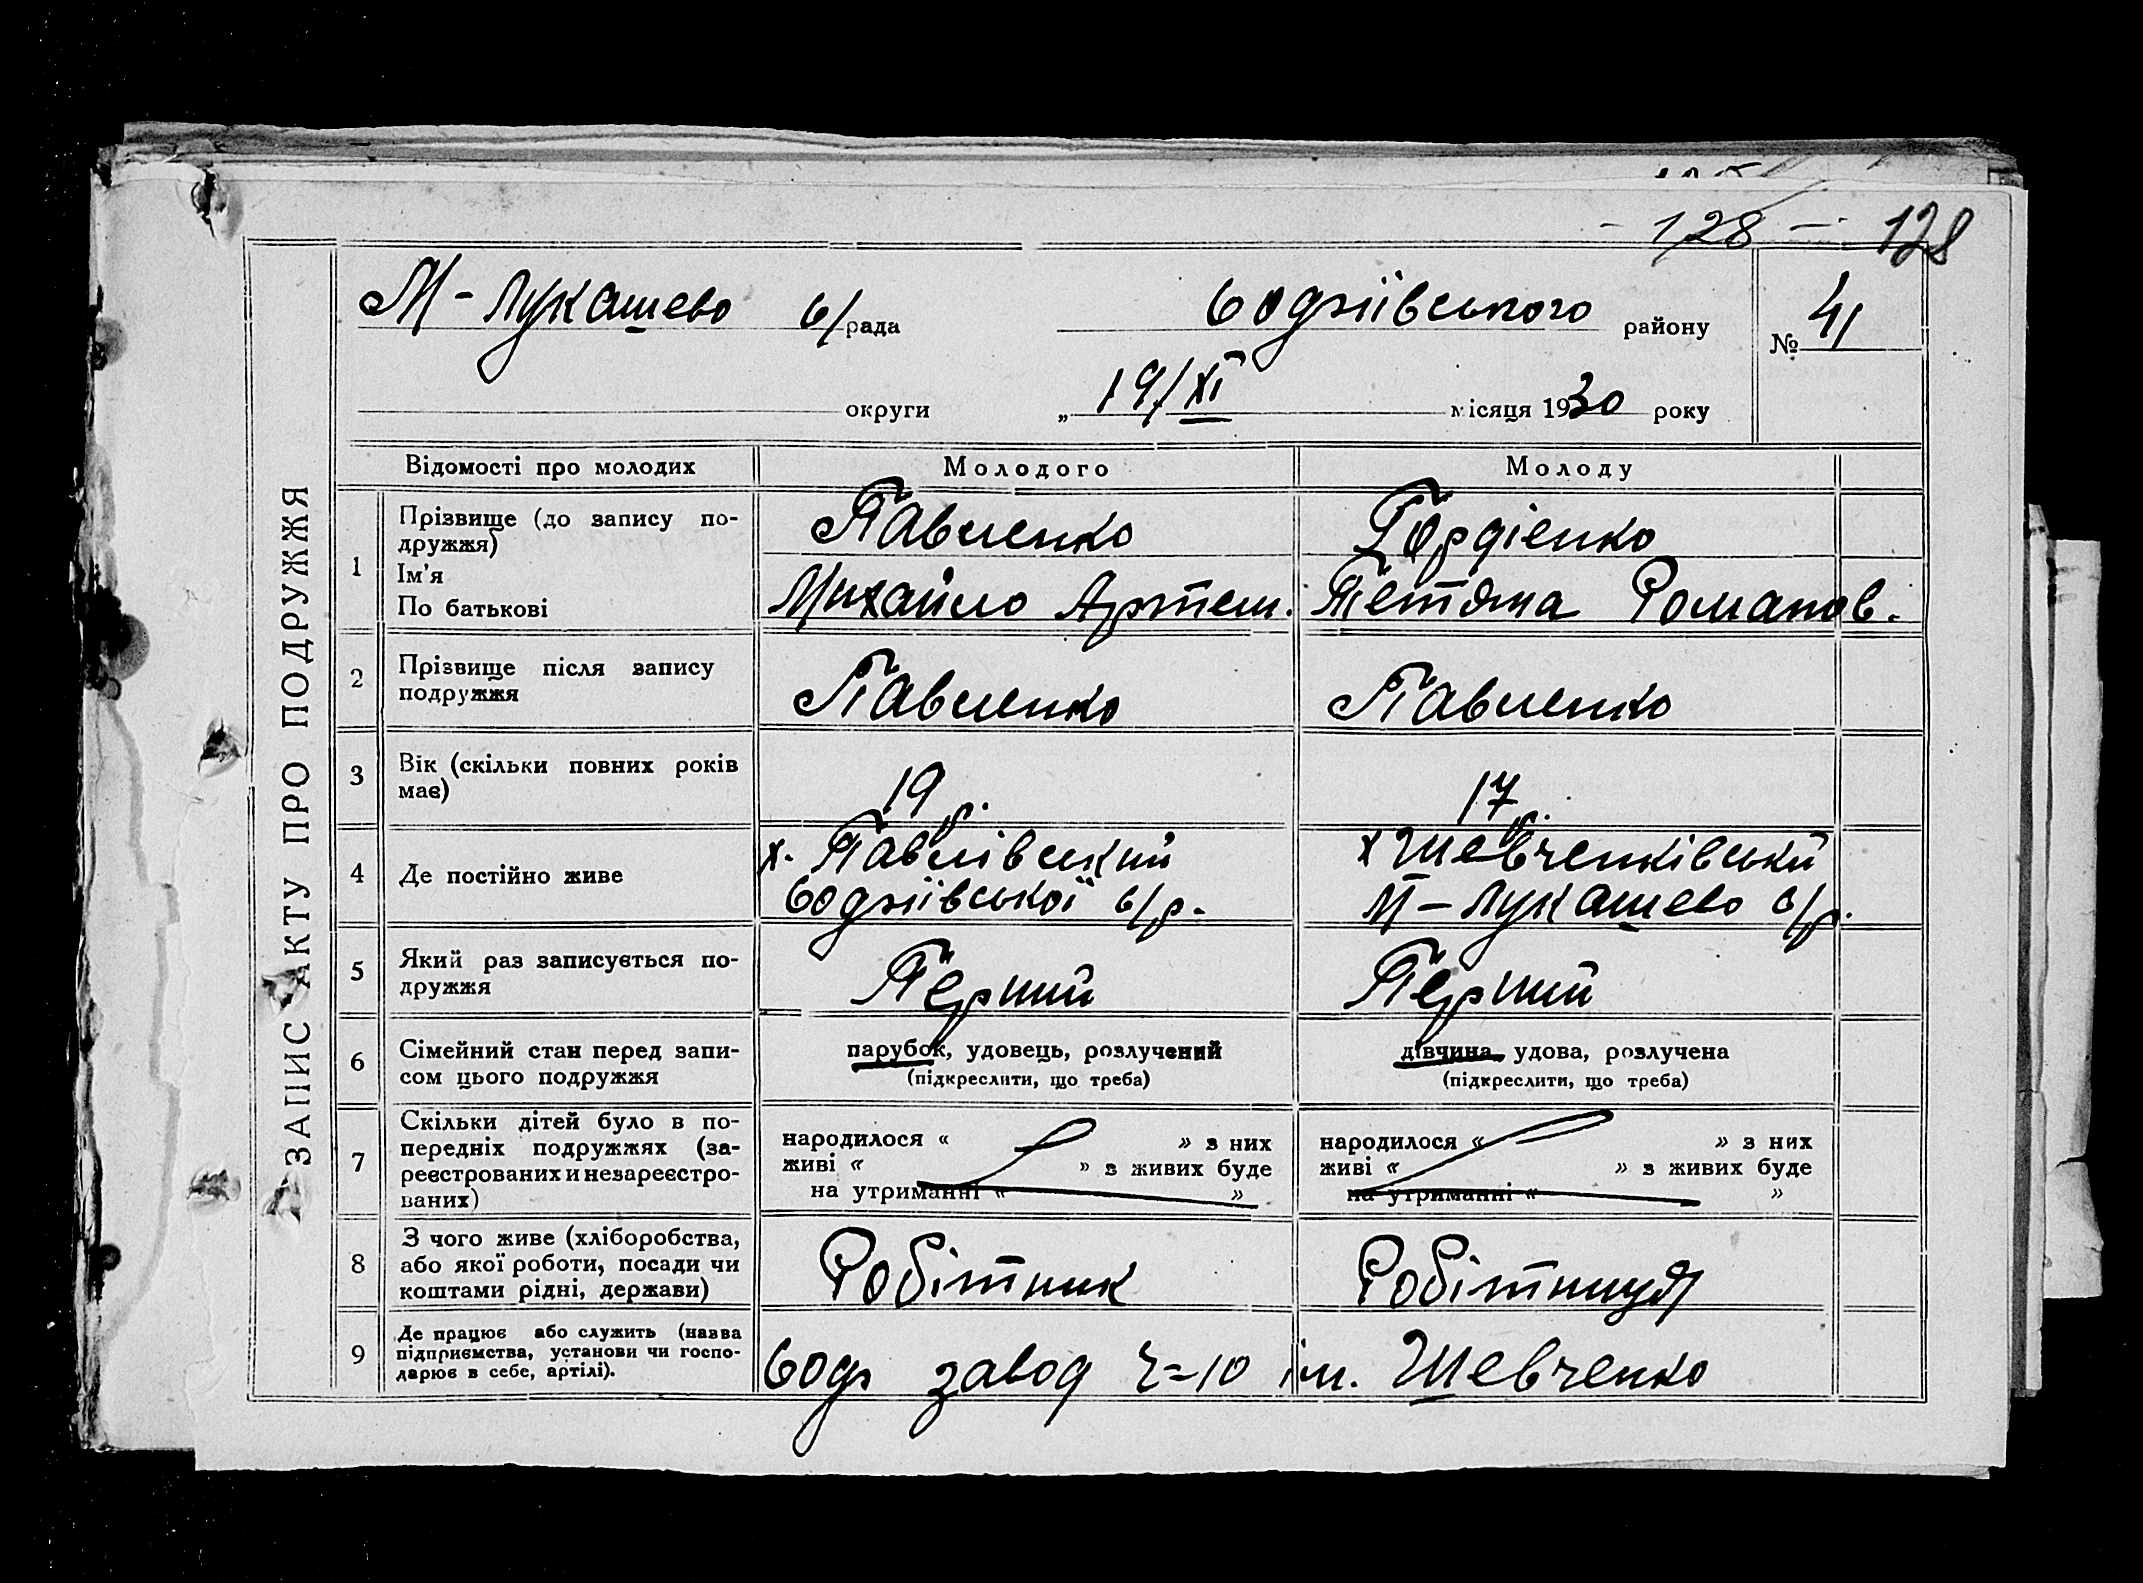 - 128 - 128
М-Лукашево с/рада Софіївського району № 41
округи „ 19/XI місяця 1930 року
ЗАПИС АКТУ ПРО ПОДРУЖЖЯ
Відомості про молодих Молодого Молоду
1 Прізвище (до запису по-
дружжя) Павленко Гордієнко
Ім'я
По батькові Михайло Артем. Тетяна Романов.
2 Прізвище після запису
подружжя Павленко Павленко
3 Вік (скільки повних років
має) 19 р. 17 р.
4 Де постійно живе х. Павлівський х Шевченківський
Софіївської с/р. М-Лукашево с/р.
5 Який раз записується по-
дружжя Перший Перший
6 Сімейний стан перед запи-
сом цього подружжя парубок, удовець, розлучений дівчина, удова, розлучена
(підкреслити, що треба) (підкреслити, що треба)
7 Скільки дітей було в по-
передніх подружжях (за-
реєстрованих и незареєстро-
ваних)
народилося « » з них народилося « » з них
живі « » з живих буде живі « » з живих буде
на утриманні « » на утриманні « »
8 З чого живе (хліборобства,
або якої роботи, посади чи
коштами рідні, держави) Робітник Робітниця
9 Де працює або служить (назва
підприємства, установи чи госпо-
дарює в себе, артілі).
Соф завод ч-10 ім. Шевченко